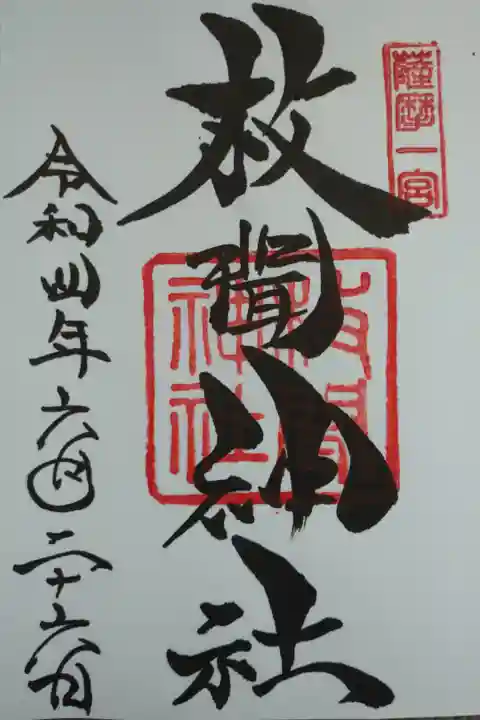 薩摩一宮
枚聞神社
枚聞
神社
令和四年六月二十六日